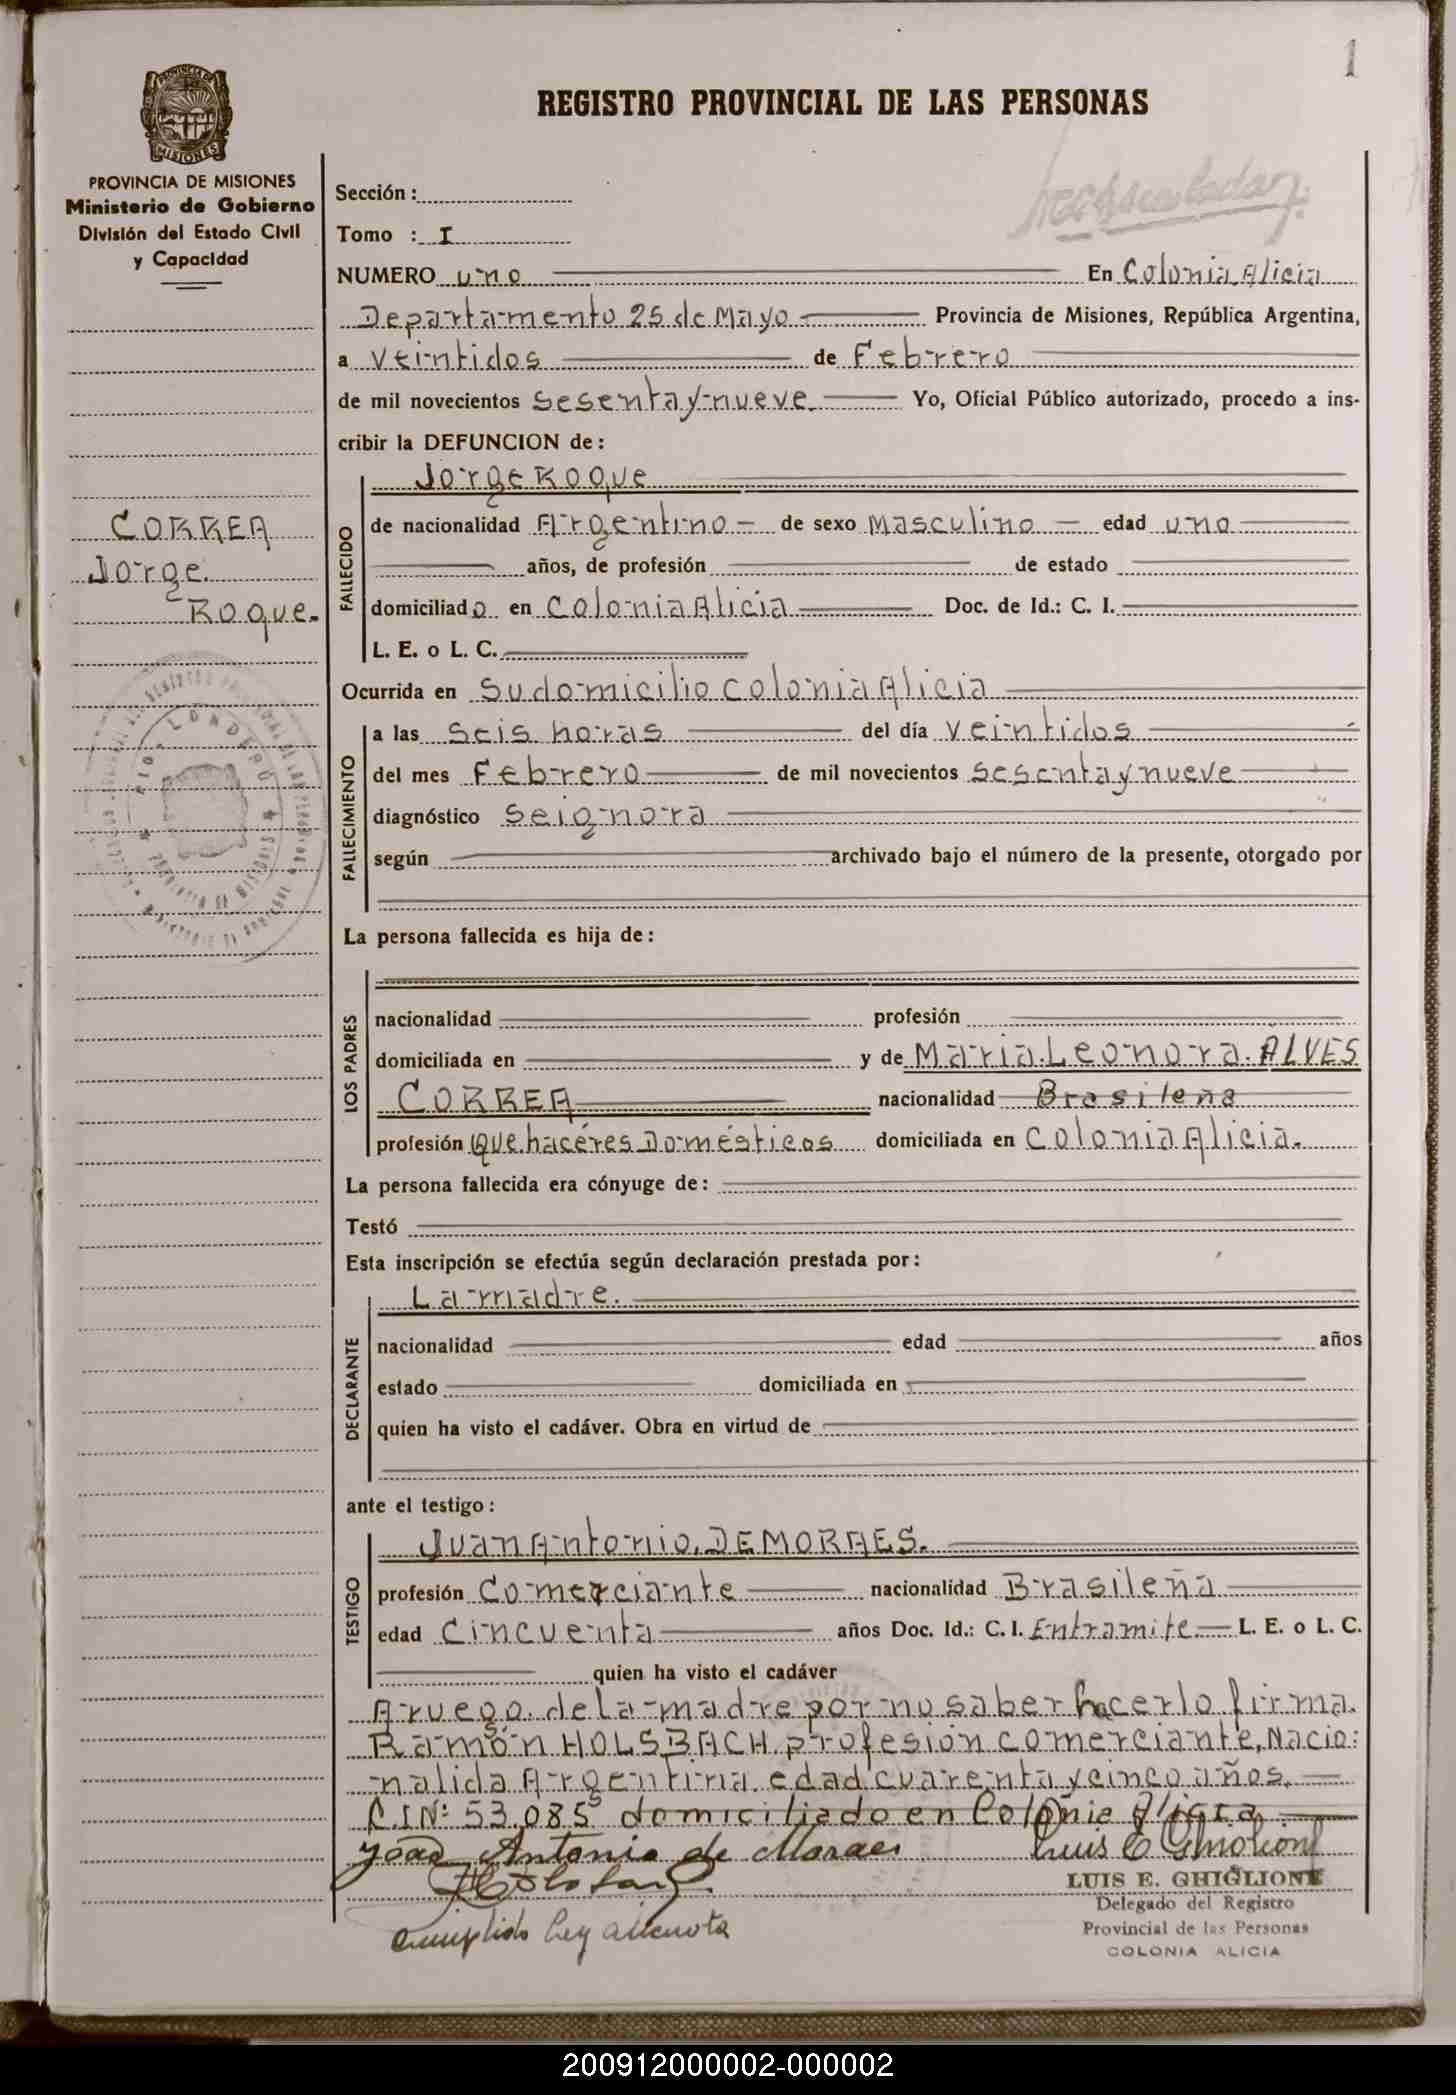 1
REGISTRO PROVINCIAL DE LAS PERSONAS
PROVINCIA DE
MISIONES
PROVINCIA DE MISIONES
Ministerio de Gobierno
División del Estado Civil
y Capacidad
CORREA
Jorge
Roque.
Sección:
Tomo : I
NUMERO uno En Colonia Alicia
Departamento 25 de Mayo Provincia de Misiones, República Argentina,
a veintidos de Febrero
de mil novecientos sesenta y nueve Yo, Oficial Público autorizado, procedo a ins-
cribir la DEFUNCION de:
Jorge Roque
FALLECIDO
de nacionalidad Argentino - de sexo Masculino - edad uno
años, de profesión de estado
domiciliado en Colonia Alicia Doc. de Id.: C. I.
L. E. o L. C.
Ocurrida en Su domicilio Colonia Alicia
FALLECIMIENTO
a las seis horas del día veintidos
del mes Febrero de mil novecientos sesenta y nueve
diagnóstico Seignora
según archivado bajo el número de la presente, otorgado por
La persona fallecida es hija de:
LOS PADRES
nacionalidad profesión
domiciliada en y de Maria Leonora ALVES
CORREA nacionalidad Brasileña
profesión Que haceres Domésticos domiciliada en Colonia Alicia.
La persona fallecida era cónyuge de:
Testó
Esta inscripción se efectúa según declaración prestada por:
La madre.
DECLARANTE
nacionalidad edad años
estado domiciliada en
quien ha visto el cadáver. Obra en virtud de
ante el testigo:
Juan Antonio, DEMORAES.
TESTIGO
profesión Comerciante nacionalidad Brasileña
edad Cincuenta años Doc. Id.: C. I. En tramite L. E. o L. C.
quien ha visto el cadáver
A ruego de la madre por no saber hacerlo firma.
Ramón HOLSBACH profesión comerciante, Nacio:
nalida Argentina edad cuarenta y cinco años.
C.I Nº 53.085 domiciliado en Colonia Alicia
João Antonio de Moraes Luis E Ghiglione
LUIS E. GHIGLIONE
Delegado del Registro
Provincial de las Personas
COLONIA ALICIA
Cumplido ley
200912000002-000002